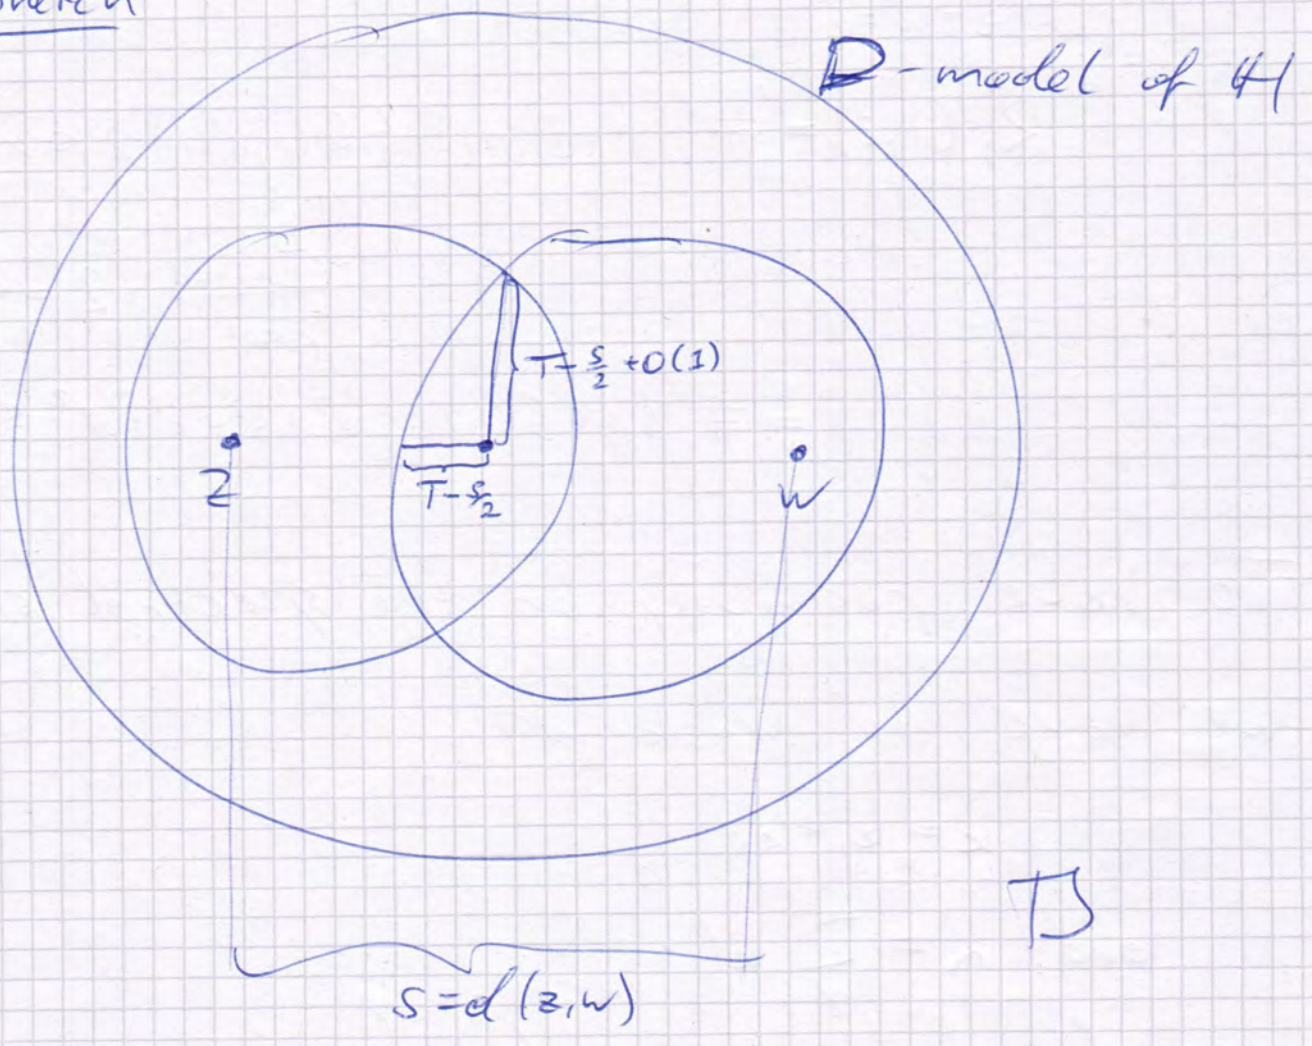 𝔻-model of ℍ
T-s/2+O(1)
z
T-s/2
w
s=d(z,w)